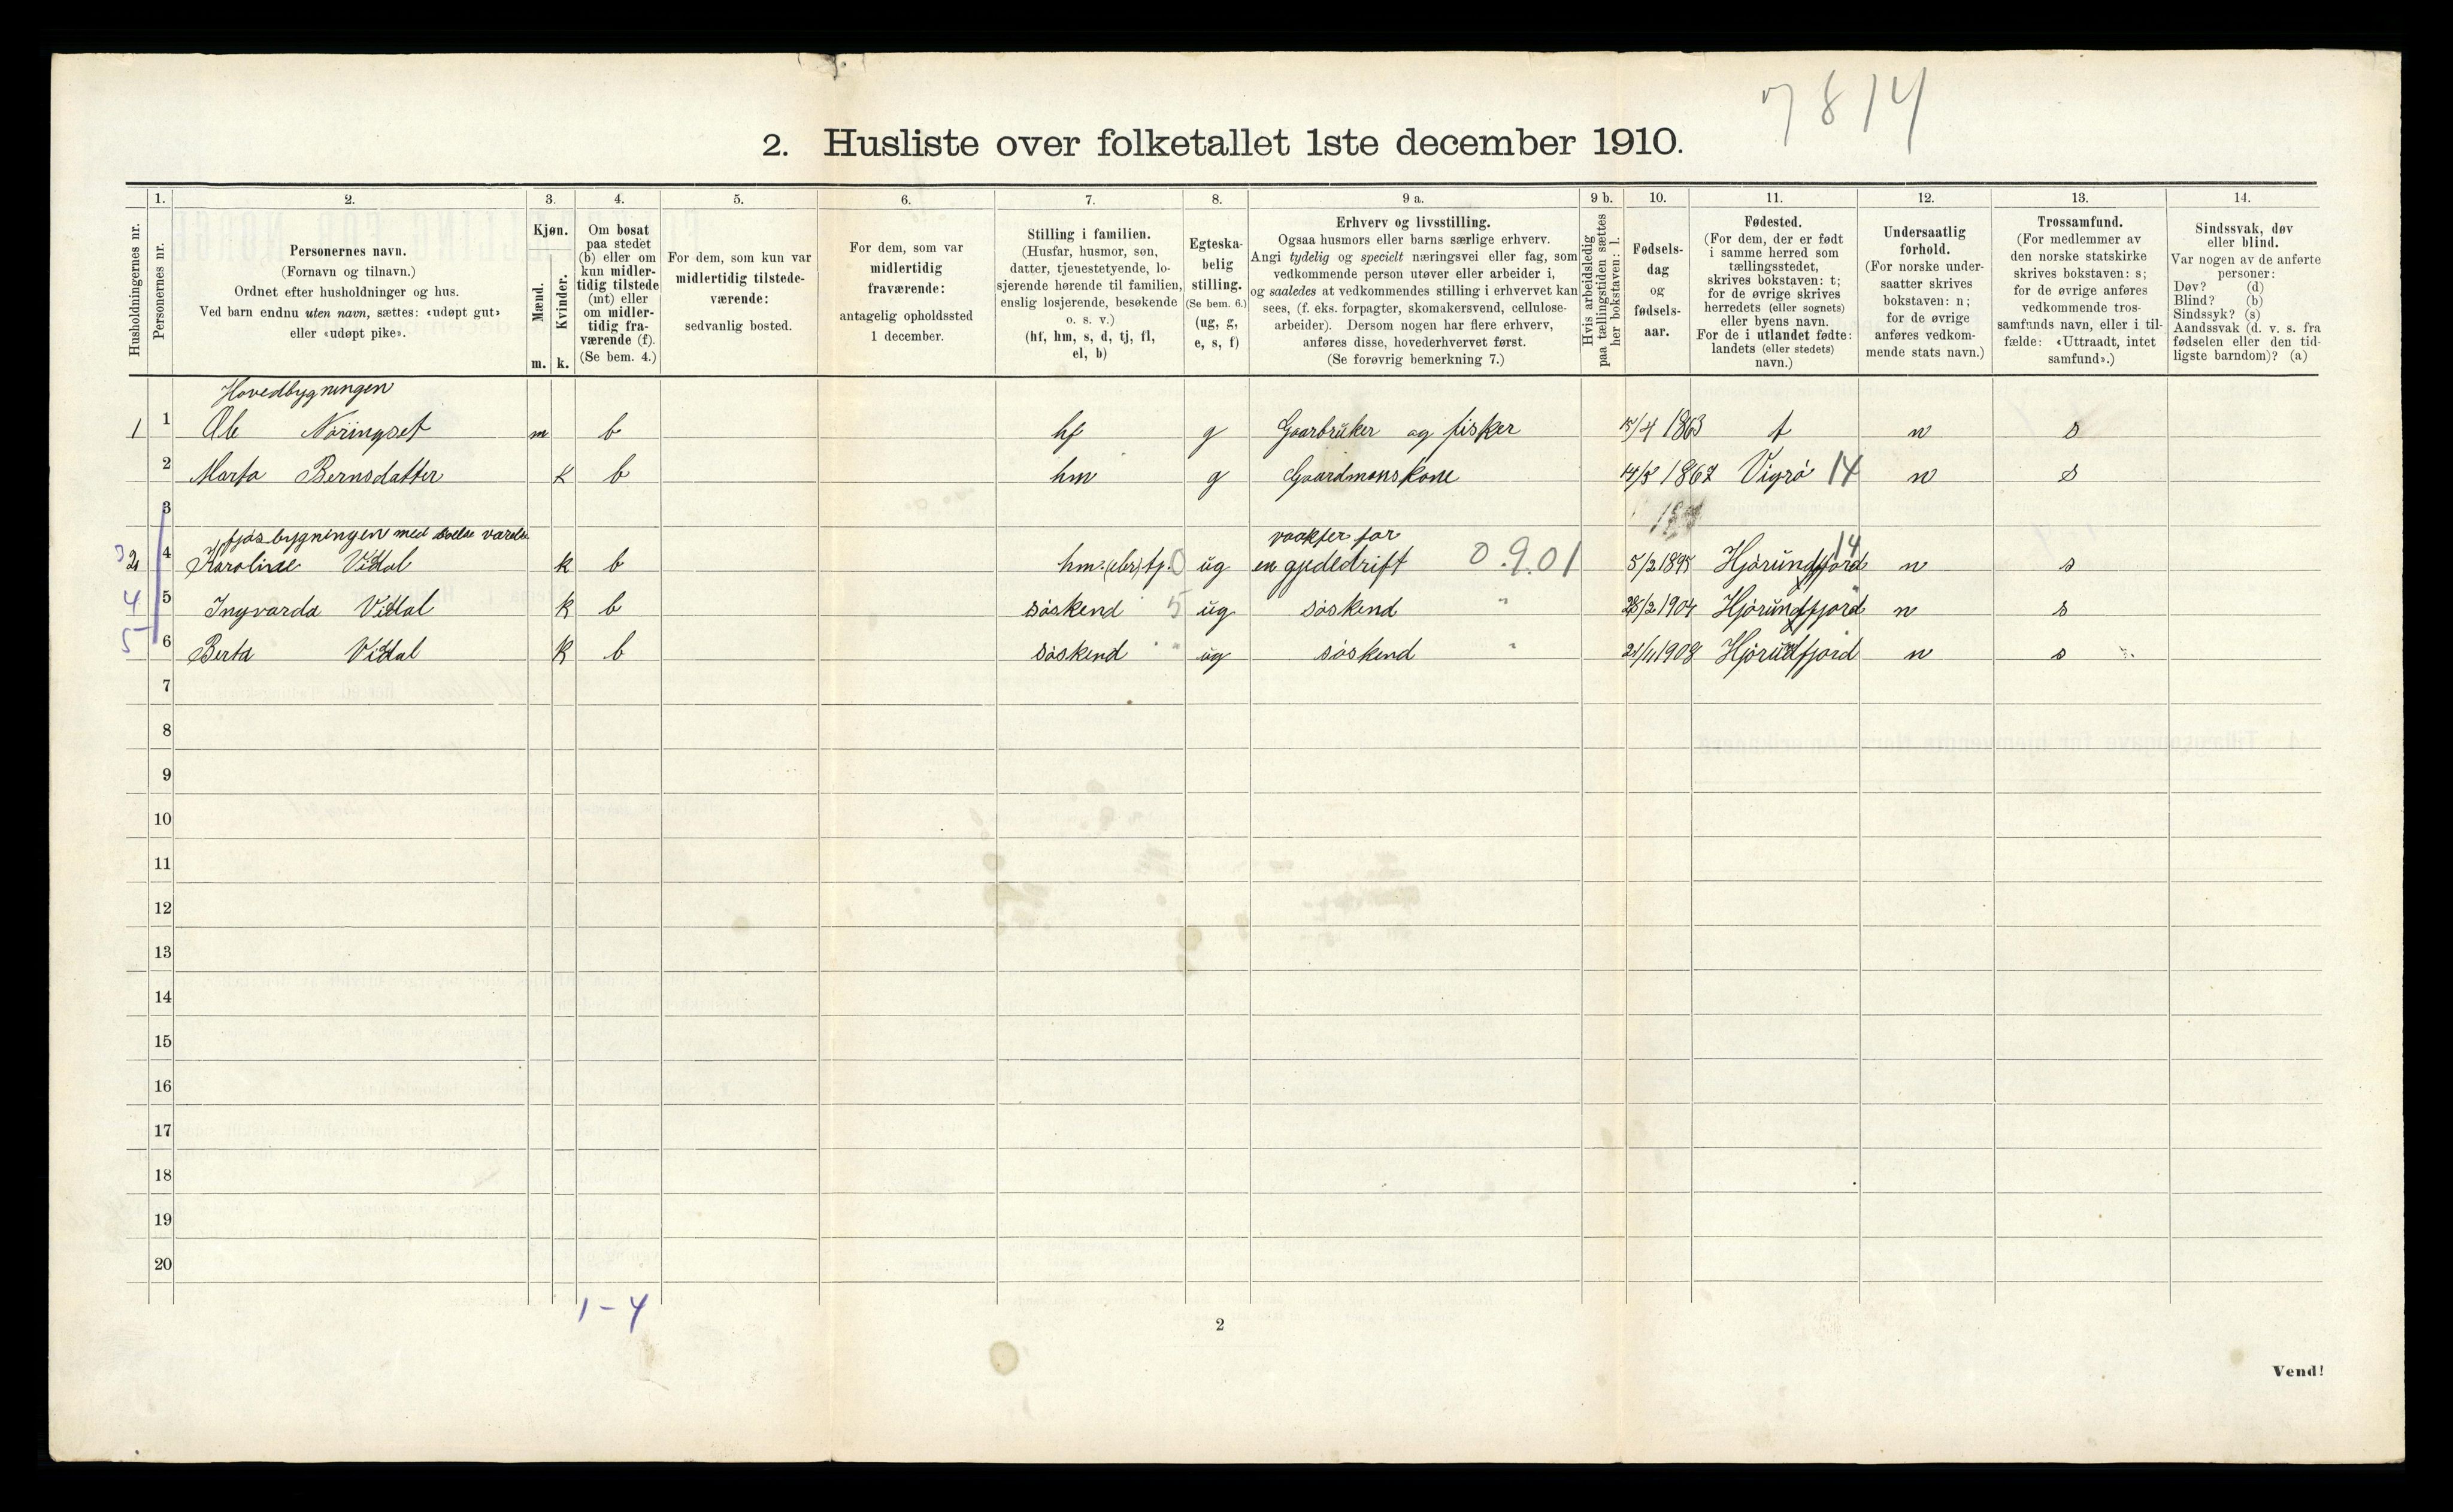 7814
2. Husliste over folketallet 1ste december 1910.
Husholdningernes nr.
1.
Personernes nr.
2.
Personernes navn.
(Fornavn og tilnavn.)
Ordnet efter husholdninger og hus.
Ved barn endnu uten navn, sættes: «udøpt gut»
eller «udøpt pike».
3.
Kjøn.
Mænd.
Kvinder.
m. k.
4.
Om bosat
paa stedet
(b) eller om
kun midler-
tidig tilstede
(mt) eller
om midler-
tidig fra-
værende (f).
(Se bem. 4.)
5.
For dem, som kun var
midlertidig tilstede-
værende:
sedvanlig bosted.
6.
For dem, som var
midlertidig
fraværende:
antagelig opholdssted
1 december.
7.
Stilling i familien.
(Husfar, husmor, søn,
datter, tjenestetyende, lo-
sjerende hørende til familien,
enslig losjerende, besøkende
o. s. v.)
(hf, hm, s, d, tj, fl,
el, b)
8.
Egteska-
belig
stilling.
(Se bem. 6.)
(ug, g,
e, s, f)
9 a.
Erhverv og livsstilling.
Ogsaa husmors eller barns særlige erhverv.
Angi tydelig og specielt næringsvei eller fag, som
vedkommende person utøver eller arbeider i,
og saaledes at vedkommendes stilling i erhvervet kan
sees, (f. eks. forpagter, skomakersvend, cellulose-
arbeider). Dersom nogen har flere erhverv,
anføres disse, hovederhvervet først.
(Se forøvrig bemerkning 7.)
9 b.
Hvis arbeidsledig
paa tællingstiden sættes
her bokstaven: l.
10.
Fødsels-
dag
og
fødsels-
aar.
11.
Fødested.
(For dem, der er født
i samme herred som
tællingsstedet,
skrives bokstaven: t;
for de øvrige skrives
herredets (eller sognets)
eller byens navn.
For de i utlandet fødte:
landets (eller stedets)
navn.)
12.
Undersaatlig
forhold.
(For norske under-
saatter skrives
bokstaven: n;
for de øvrige
anføres vedkom-
mende stats navn.)
13.
Trossamfund.
(For medlemmer av
den norske statskirke
skrives bokstaven: s;
for de øvrige anføres
vedkommende tros-
samfunds navn, eller i til-
fælde: «Uttraadt, intet
samfund».)
14.
Sindssvak, døv
eller blind.
Var nogen av de anførte
personer:
Døv? (d)
Blind? (b)
Sindssyk? (s)
Aandssvak (d. v. s. fra
fødselen eller den tid-
ligste barndom)? (a)
Hovedbygningen
1 1 Ole Nöringset m b hf g Gaarbrüker og fisker 15/4 1863 t n s
2 Marta Bernsdatter k b hm g Gaardmanskone 14/5 1867 Vigrö 14 n s
3
fjøsbygningen med
vaakter for
2 4 Karoline Viddal k b hm. tj. 0 ug en gjededrift 0.9.01 5/2 1895 Hjörundfjord 14 n s
4 5 Ingvarda Viddal k b söskend 5 ug söskend " 28/2 1904 Hjörundfjord n s
5 6 Berta Viddal k b söskend " ug söskend " 21/11 1908 Hjörundfjord n s
7
8
9
10
11
12
13
14
15
16
17
18
19
20
1-4
2
Vend!